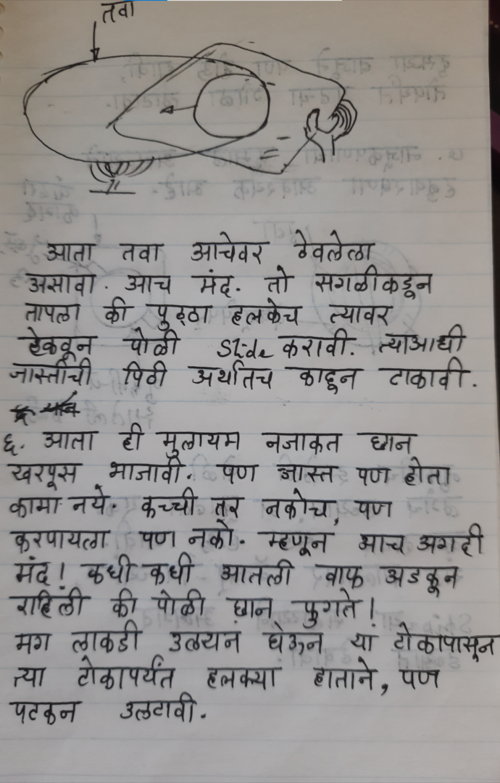 तवा
आता तवा आचेवर ठेवलेला
असावा. आच मंद. तो सगळीकडून
तापला की पुठ्ठा हलकेच त्यावर
टेकवून पोळी slide करावी. त्याआधी
जास्तीची पिठी अर्थातच काढून टाकावी.
६. आता ही मुलायम नजाकत छान
खरपूस भाजावी. पण जास्त पण होता
कामा नये. कच्ची तर नकोच, पण
करपायला पण नको. म्हणून आच अगदी
मंद! कधी कधी आतली वाफ अडकून
राहिली की पोळी छान फुगते!
मग लाकडी उलथनं घेऊन या टोकापासून
त्या टोकापर्यंत हलक्या हाताने, पण
पटकन उलटावी.